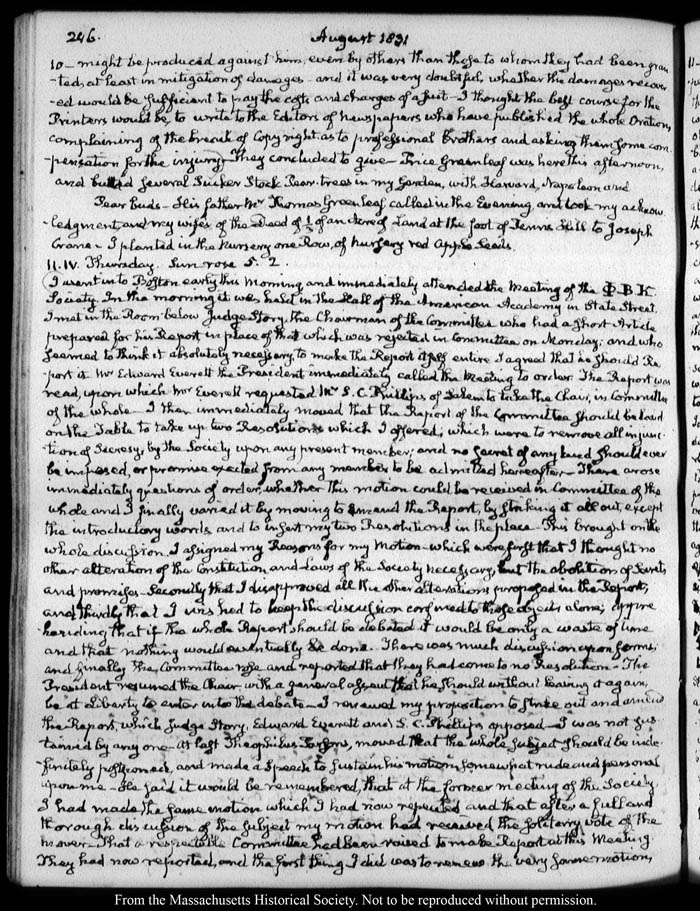 246.
August 1831
10 – might be produced against him, even by others than those to whom they had been gran
-ted, at least in mitigation of damages – and it was very doubtful, whether the damages recover
-ed would be sufficient to pay the costs and charges of a suit – I thought the best course for the
Printers would be to write to the Editors of newspapers who have published the whole Oration,
complaining of the breach of Copy right as to professional Brothers and asking them some com
-pensation for the injury – They concluded to give – Price Greenleaf was here this afternoon,
and budded several Sucker Stock Pear-trees in my Garden, with Harvard, Napoleon and
Pear buds – His father Mr Thomas Greenleaf called in the Evening, and took my acknow
-ledgment, and my wife's of the Deed of ½ of an Acre of Land at the foot of Penns Hill to Joseph
Crane – I planted in the Nursery one Row, of nursery red Apple Seeds.
11. IV. Thursday. Sun rose 5. 2.
I went in to Boston early this Morning and immediately attended the Meeting of the ΦBK
Society. In the morning it was held in the Hall of the American Academy in State Street.
I met in the Room below Judge Story, the Chairman of the Committee who had a short Article
prepared for his Report in place of that which was rejected in Committee on Monday; and who
seemed to think it absolutely necessary, to make the Report itself entire I agreed that he should Re
-port it Mr Edward Everett the President immediately called the Meeting to order. The Report was
read, upon which Mr Everett requested Mr S. C. Phillips of Salem to take the Chair, in Committee
of the whole – I then immediately moved that the Report of the Committee should be laid
on the Table to take up two Resolutions which I offered; which were to remove all injunc
-tion of Secresy by the Society upon any present member; and no secret of any kind should ever
be imposed, or promise exacted from any member to be admitted hereafter – There arose
immediately questions of order, whether this motion could be received in Committee of the
whole and I finally varied it by moving to amend the Report, by striking it all out, except
the introductory words and to insert my two Resolutions in the place – This brought on the
whole discussion. I assigned my Reasons for my Motion – which were first that I thought no
other alteration of the Constitution and Laws of the Society necessary, but the abolition of Secrets
and promises. Secondly that I disapproved all the other alterations proposed in the Report,
and thirdly that I wished to keep the discussion confined to those objects alone; appre
-hending that if the whole Report should be debated it would be only a waste of time
and that nothing would eventually be done. There was much discussion upon forms;
and finally the Committee rose and reported that they had come to no Resolution – The
President resumed the Chair, with a general assent that he should without leaving it again,
be at Liberty to enter into the debate – I renewed my proposition to strike out and amend
the Report, which Judge Story, Edward Everett and S. C. Phillips opposed – I was not sus
-tained by any one – At last Theophilus Parsons, moved that the whole subject should be inde
-finitely postponed, and made a Speech to sustain his motion somewhat rude and personal
upon me – He said it would be remembered, that at the former meeting of the Society
I had made the same motion which I had now repeated and that after a full and
thorough discussion of the subject my motion had received the solitary vote of the
mover – That a respectable Committee had been raised to make Report at this Meeting.
They had now reported, and the first thing I did was to renew the very same motion,
From the Massachusetts Historical Society. Not to be reproduced without permission.